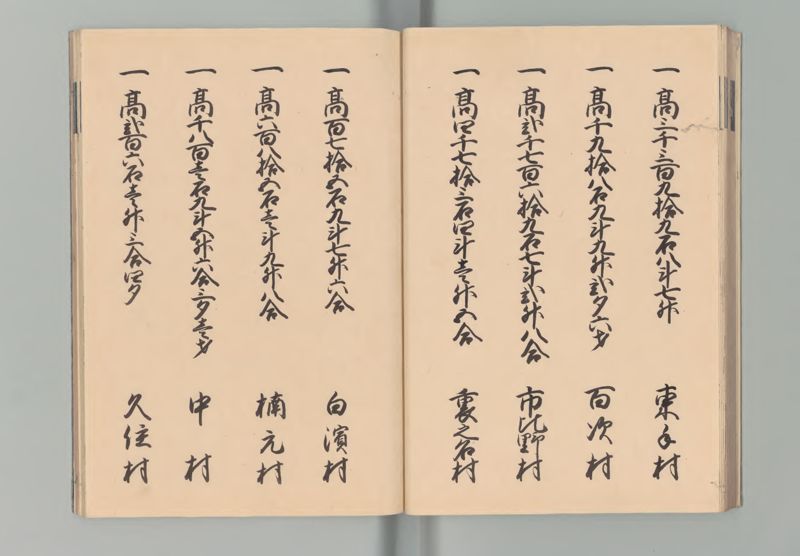 一 髙三千三百九拾九石八斗七升 東手村
一 髙千九拾八石九斗九升弐夕六才 百次村
一 髙弐千七百六拾九石七斗弐升八合 市比野村
一 髙四千七拾三石四斗壱升五合 裏之名村
一 髙百七拾五石九斗七升六合 白濱村
一 髙六百八拾五石壱斗九升八合 楠元村
一 髙千八百壱石九斗五升六合三夕壱才 中村
一 髙弐百六石壱升三合四夕 久住村